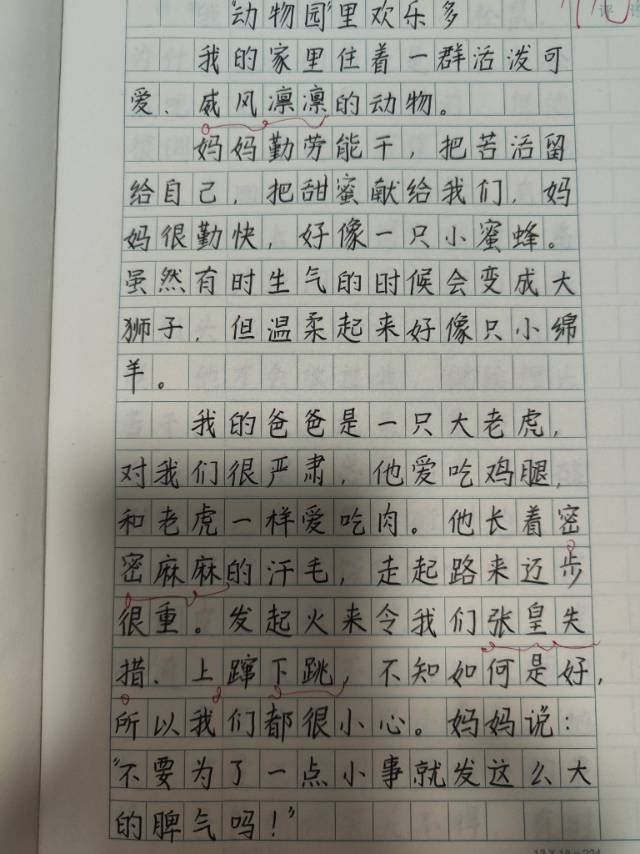 “动物园”里欢乐多
我的家里住着一群活泼可
爱、威风凛凛的动物。
妈妈勤劳能干，把苦活留
给自己，把甜蜜献给我们，妈
妈很勤快，好像一只小蜜蜂。
虽然有时生气的时候会变成大
狮子，但温柔起来好像只小绵
羊。
我的爸爸是一只大老虎，
对我们很严肃，他爱吃鸡腿，
和老虎一样爱吃肉。他长着密
密麻麻的汗毛，走起路来迈步
很重。发起火来令我们张皇失
措、上蹿下跳，不知如何是好，
所以我们都很小心。妈妈说：
“不要为了一点小事就发这么大
的脾气吗！”